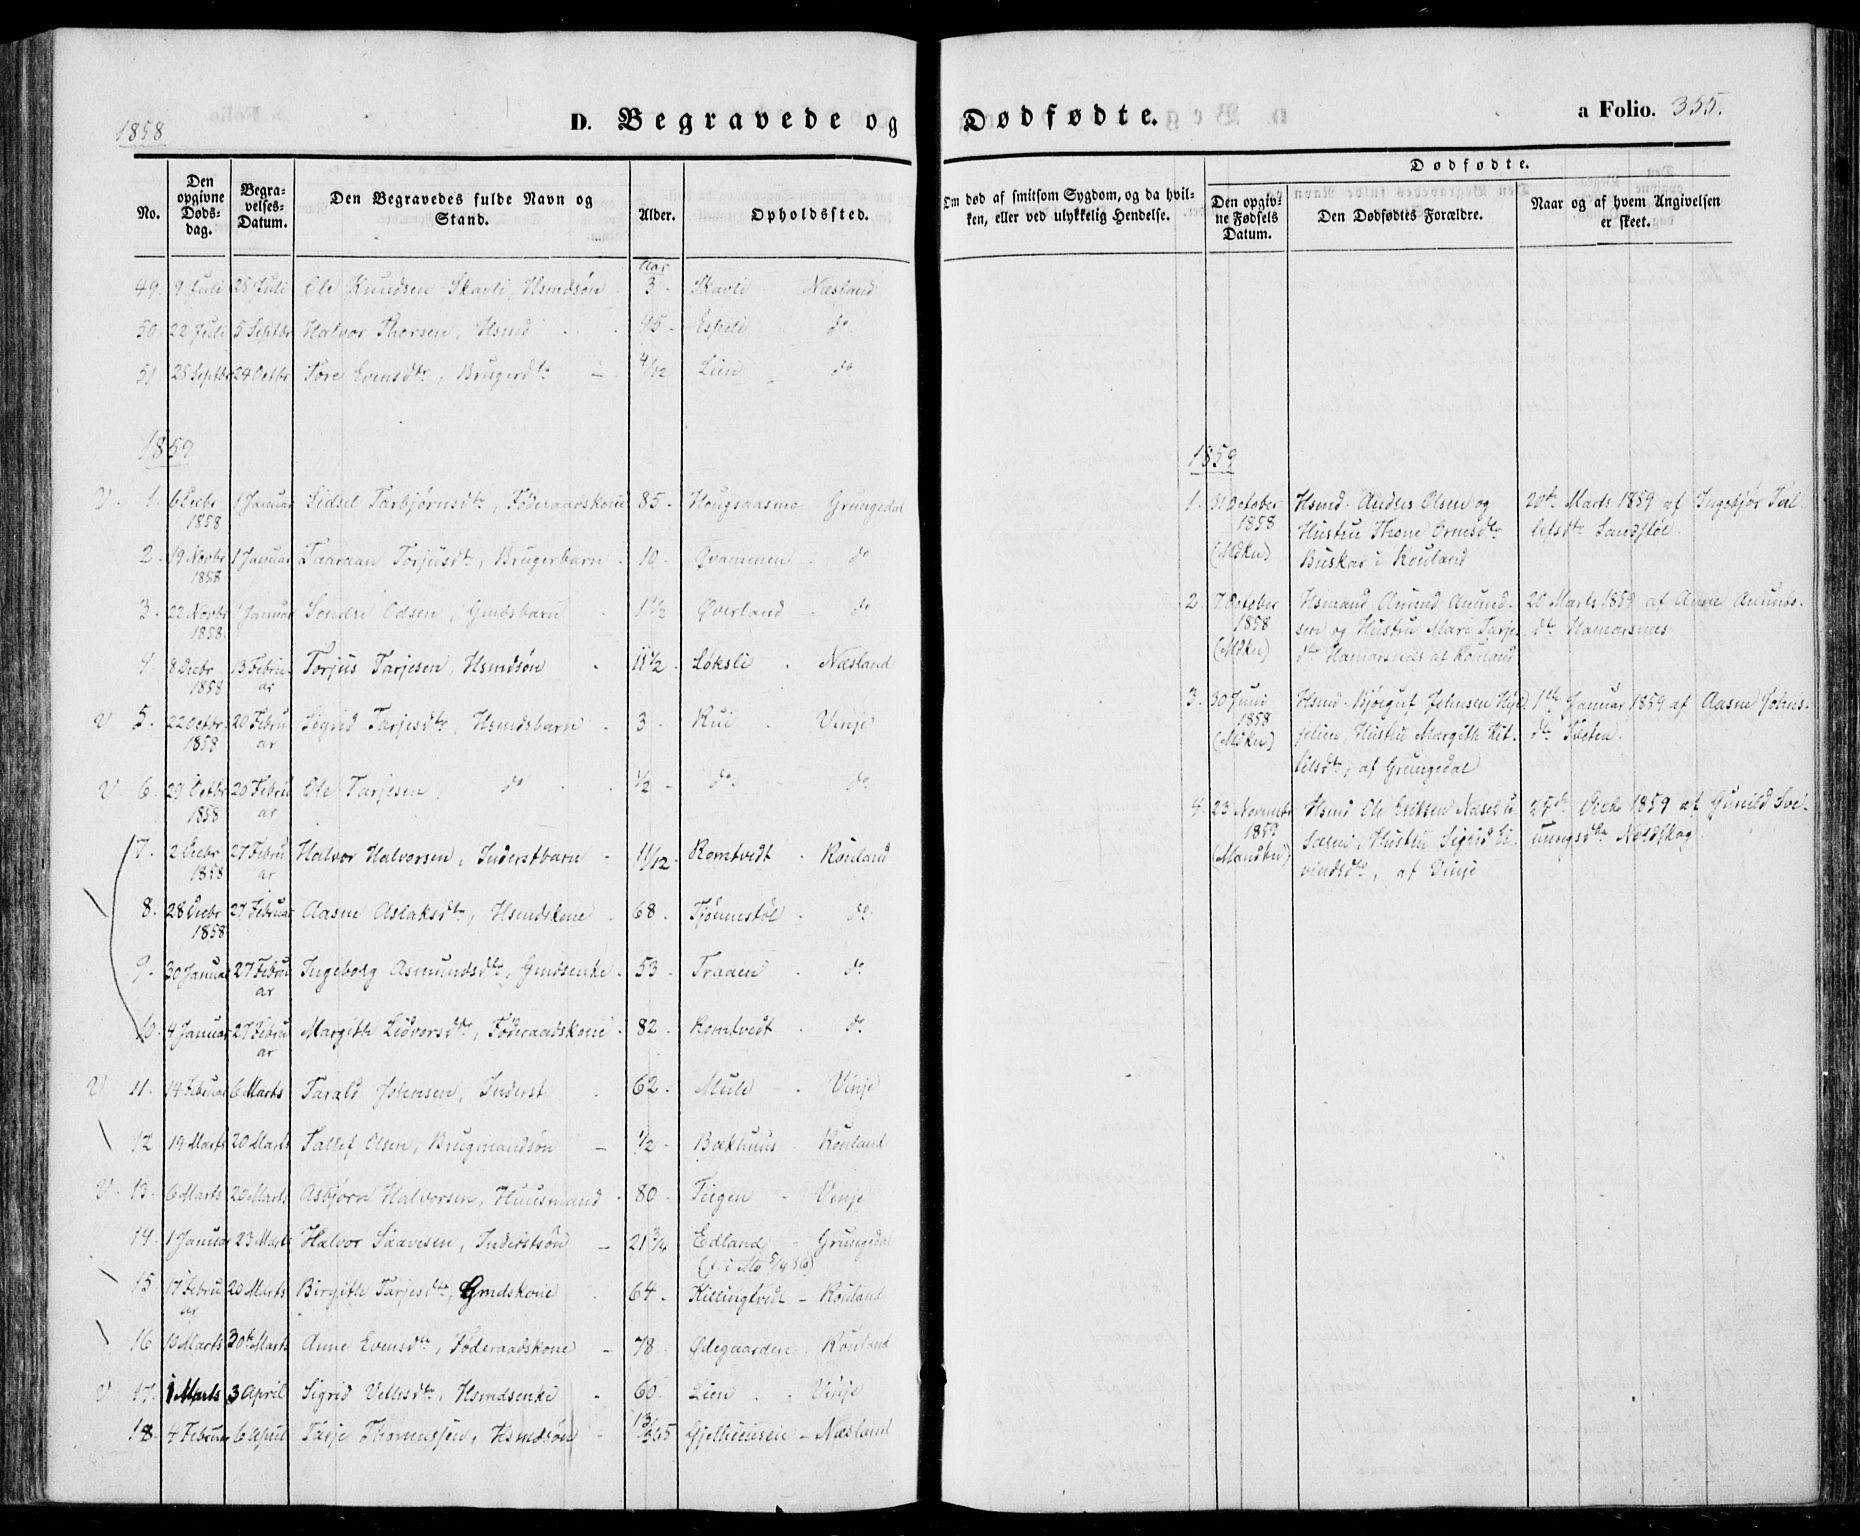 1858
D. Begravede og Dødfødte.
a Folio. 355.
No.
Den opgivne Døds-dag.
Begra-velses-Datum.
Den Begravedes fulde Navn og Stand.
Alder.
Opholdssted.
Om død af smitsom Sygdom, og da hvil-
ken, eller ved ulykkelig Hendelse.
Dødfødte.
Den opgiv-ne Fødsels Datum.
Den Dødfødtes Forældre.
Naar og af hvem Angivelsen er skeet.
Aar
49. 9 Juli 25 Juli Ole Knudsen Skavli, Hsmdsøn 3 Skavli Næsland
50. 22 Juli 5 Septbr Halvor Thorsen, Hsmd 45 Espeli do
51 25 Septbr 24 Octbr Tore Evensdtr, Brugerdtr 4/12 Lien do
1859
V. 1. 6 Decbr 1858 1 Januar Sidsel Tarbjørnsdtr, Føderaadskone 85 Hougsaasmo Grungedal
2. 19 Novbr 1858 1 Januar Taaraan Torjusdtr, Brugerbarn 10 Qvammen do
3. 22 Novbr 1858 1 Januar Sondre Odsen, Gmdsbarn 1 1/2 Øverland do
4 8 Decbr 1858 13 Februar Torjus Tarjesen, Hsmdsøn 11 1/2 Løksli Næsland
V 5. 22 Octbr 1858 20 Februar Sigrid Tarjesdtr, Hsmdsbarn 3 Rui Vinje
V 6. 29 Octbr 1858 20 Februar Ole Tarjesen, do 1/2 do do
7. 2 Decbr 1858 27 Februar Halvor Halvorsen, Inderstbarn 11/12 Romtvedt Rouland
8. 28 Decbr 1858 27 Februar Aasne Aslaksdtr, Hsmdskone 68 Tjønnestøl do
9. 30 Januar 27 Februar Ingeborg Asmundsdtr, Gmdsenke 53 Traden do
10. 4 Januar 27 Februar Margith Lidvorsdtr, Føderaadskone 82 Romtvedt do
V 11. 14 Februar 6 Marts Tarald Johnsen, Inderst 62 Mule Vinje
12 19 Marts 20 Marts Tallef Olsen, Brugmandsøn 1/2 Bækhuus Rouland
V. 13. 6 Marts 20 Marts Asbjørn Halvorsen, Huusmand 80 Teigen Vinje
14. 1 Januar 23 Marts Halvor Saavesen, Inderstsøn 21 3/4 Edland Grungedal
15 17 Februar 20 Marts Birgith Tarjesdtr, Gmdskone 64 Killingtvedt Rouland
16 10 Marts 30te Marts Anne Evensdtr, Føderaadskone 78 Ødegaarden Rouland
V 17. 1 Marts 3 April Sigrid Vetlesdtr, Hsmdsenke 60 Lien Vinje
18. 4 Februar 6 April Tarje Thomassen, Hsmdsøn 13/365 Næsland
1859
1. 31 October 1858 (Mdkn)
Hsmd. Anders Olsen og
Hustru Thone Ormsdtr
Buskar i Rouland
20de Marts 1859 af Ingebjør Tal-
lefsdtr Sandstøl.
2. 7 October 1858 (Mdkn)
Hsmand Anund Anund-
sen og Hustru Mari Tarjes
dtr Hamarsnæs af Rouland
20 Marts 1859 af Anne Anunds-
dtr Hamarsnæs
3. 30 Juni 1858 (Mdkn)
Hsmd. Bjørguf Johnsen
jelien, Hustru Margith Kit-
tilsdtr, af Grungedal
1ste Januar 1859 af Aasne Johns-
dtr Tveten.
4. 23 Novembr 1859 (Mandkn)
Hsmd Ole Eriksen
Hustru Sigrid Ei-
vindsdtr, af Vinje
Decbr 1859 af Gunild Sve-
nungsdtr Nordskog.